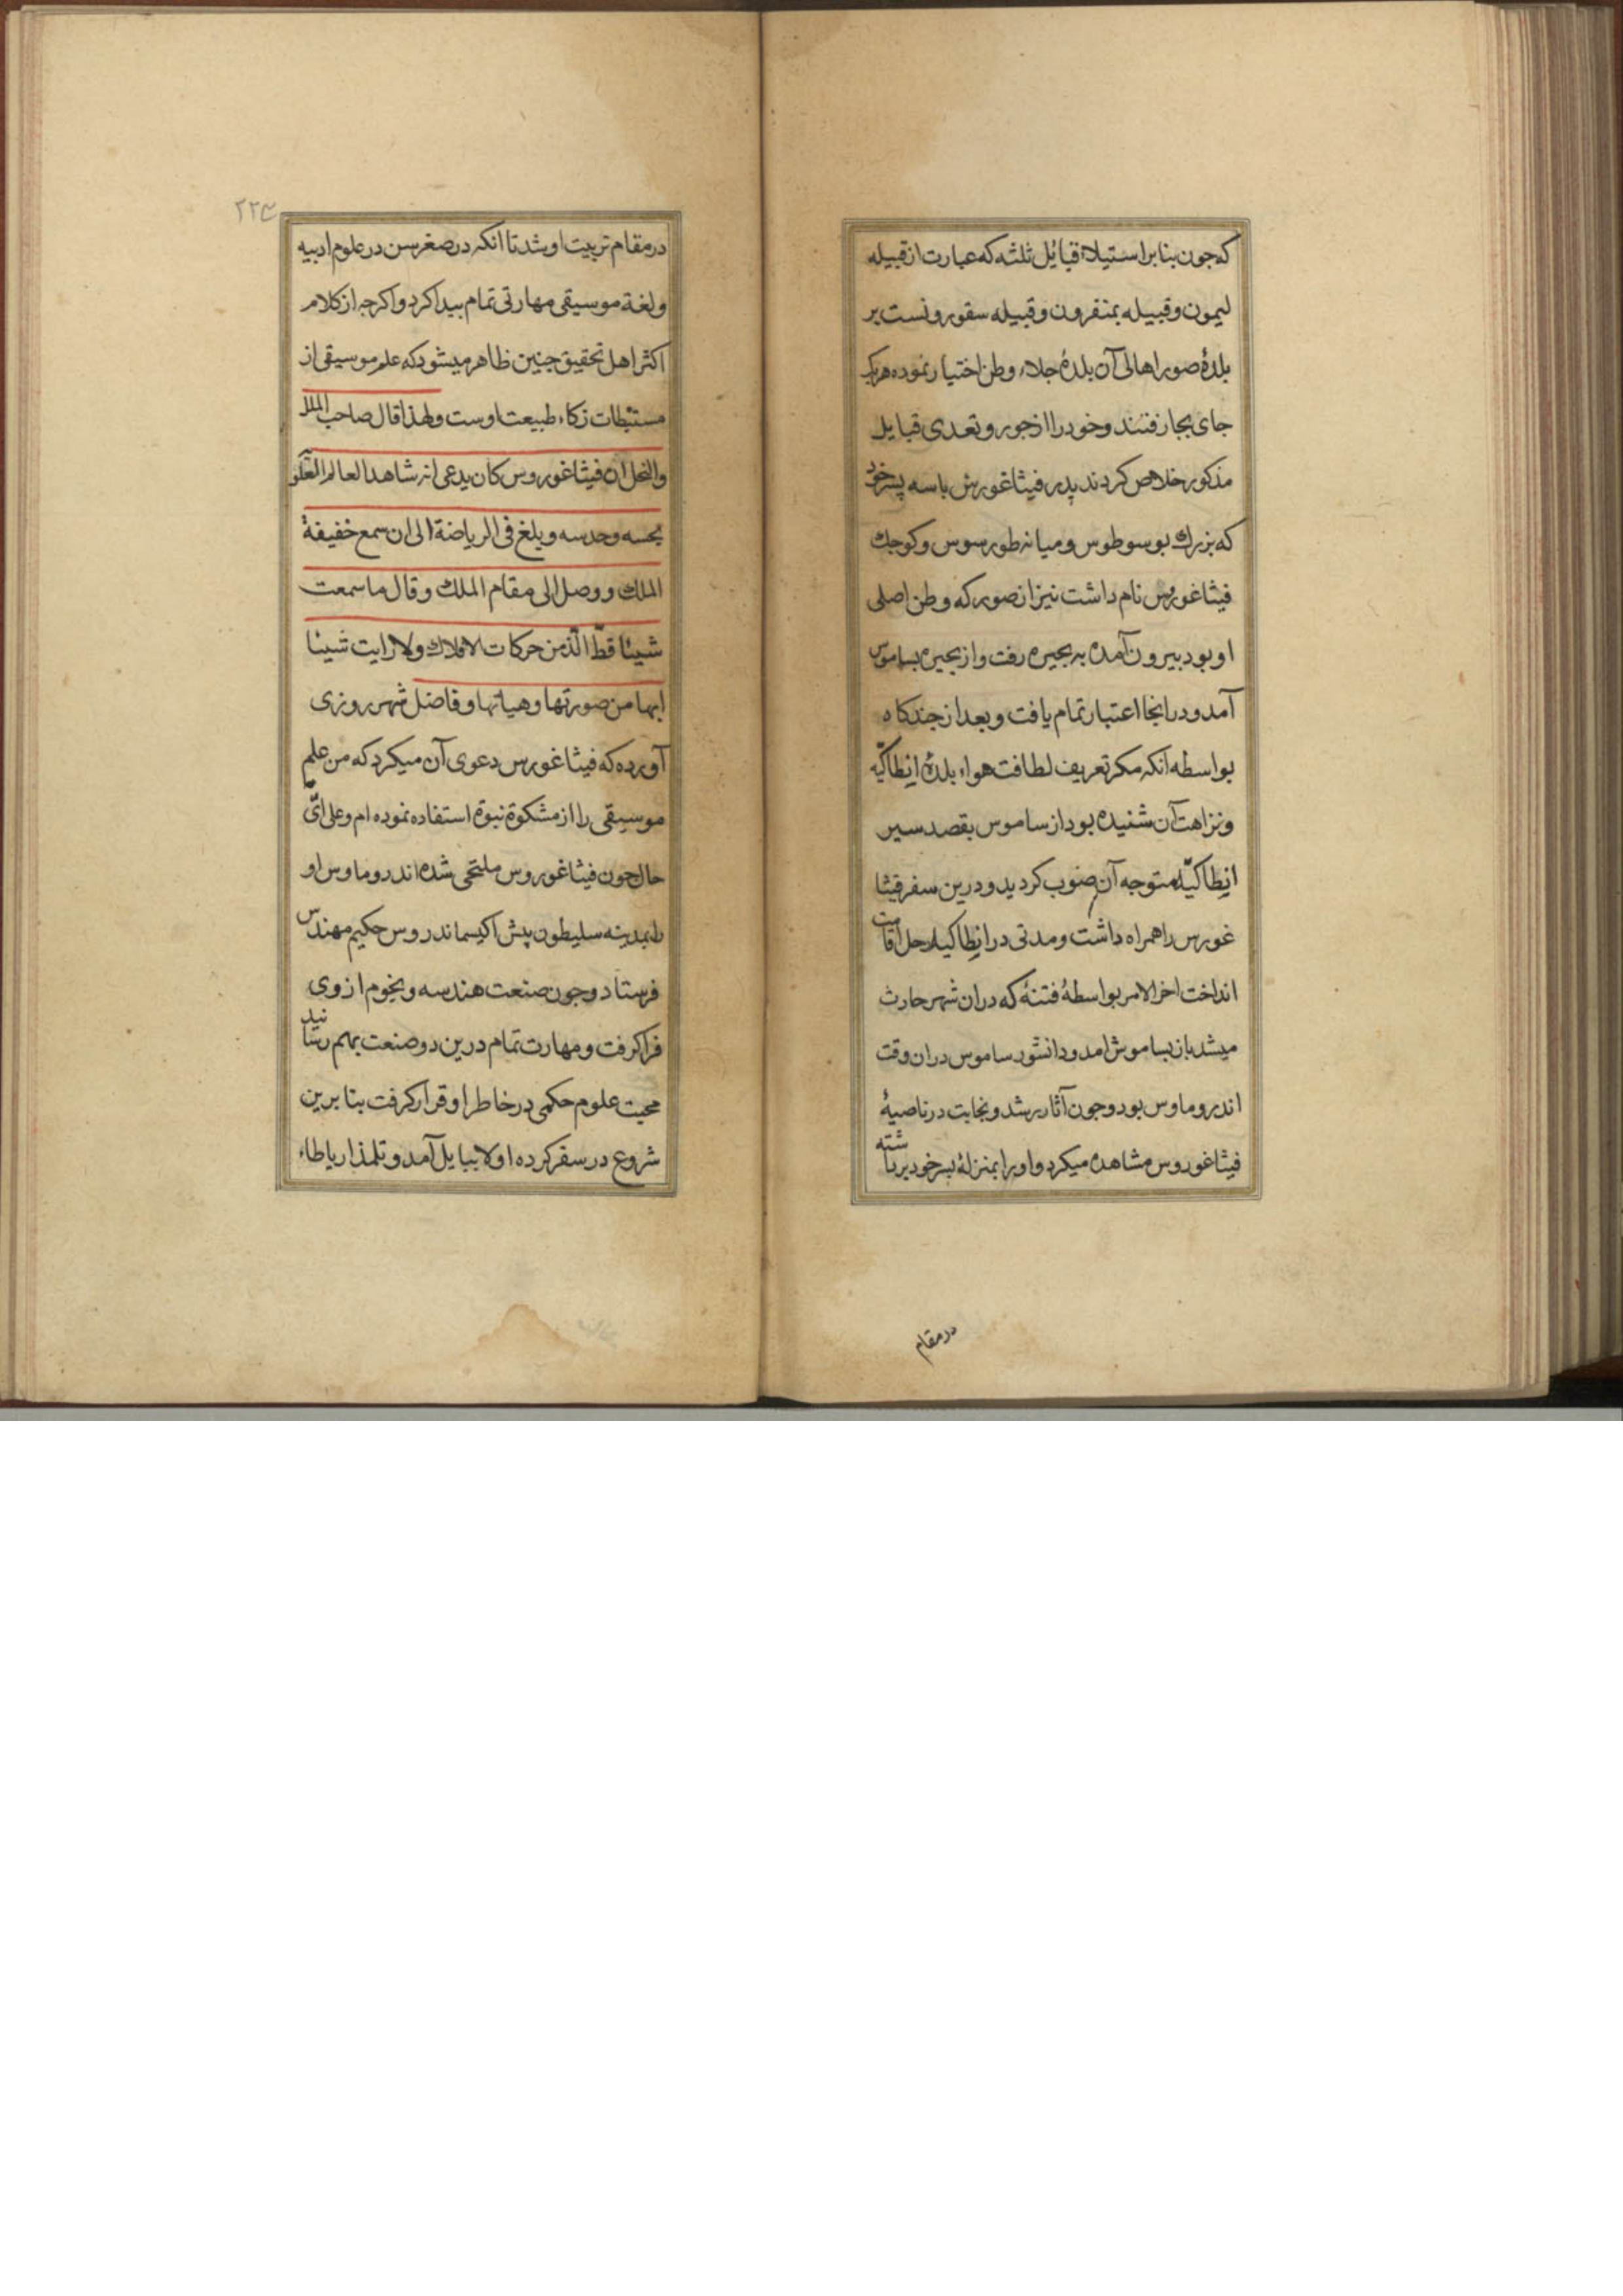 که جون بنا بر استیلاء قبایٔل ثلثه که عبارت از قبیله
لیمون و قبیله بمنقرون و قبیله سقورونست بر
بلدهٔ صور اهالی آن بلده جلاء وطن اختیار نموده هریک
جای بجا رفتند و خود را از جور و تعدی قبایل
مذکور خلاص کردند پدر فیثاغورس با سه پسر خود
که بزرك بوسوطوس و میانه طورسوس و کوجك
فیثاغورس نام داشت نیز از صور که وطن اصلی
او بود بیرون آمده به بحیره رفت و از بحیره بساموس
آمد و در انجا اعتبار تمام یافت و بعد از جند کاه
بواسطه انکه مکر تعریف لطافت هواء بلدهٔ انطاکیّه
و نزاهت آن شنیده بود از ساموس بقصد سیر
انطاکیّه متوجه آن صوب کردید و درین سفر فیثا
غورس را همراه داشت و مدتی در انطاکیه رحل اقامت
انداخت اخر الامر بواسطهٔ فتنهٔ که دران شهر حادث
میشد باز بساموش امد و دانشور ساموس دران وقت
اندروماوس بود و جون آثار رشد و نجابت در ناصیهٔ
فیثاغوروس مشاهده میکرد و او را بمنزلهٔ بسر خود برداشته
در مقام
۲۲۴
در مقام تربیت او شد تا انکه در صغر سن در علوم ادبیه
و لغة موسیقی مهارتی تمام بیدا کرد و اکرجه از کلام
اکثر اهل تحقیق جنین ظاهر میشود که علم موسیقی از
مستنبطات زکاء طبیعت اوست و لهذا قال صاحب الملل
والنحل ان فیثاغوروس کان یدعی انه شاهد العالم العلو
بحسه وحدسه و بلغ فی الریاضة الی ان سمع خفیفة
الملك و وصل الی مقام الملك و قال ما سمعت
شیئا قطّ الذ من حرکات الافلاك ولا رایت شیئا
ابها من صورتها و هیاتها و فاضل شهرروزی
آورده که فیثاغورس دعوی آن میکرد که من علم
موسیقی را از مشکوة نبوة استفاده نموده ام و علی ایّ
حال جون فیثاغوروس ملتحی شده اندروماوس او
را بمدینه سلیطون پیش اکیسماندروس حکیم مهندس
فرستاد و جون صنعت هندسه و نجوم از وی
فرا کرفت و مهارت تمام درین دو صنعت بهم رسانید
محبت علوم حکمی در خاطر او قرار کرفت بنا برین
شروع در سفر کرده اولا ببابل آمد و تلمذ ارباطاء